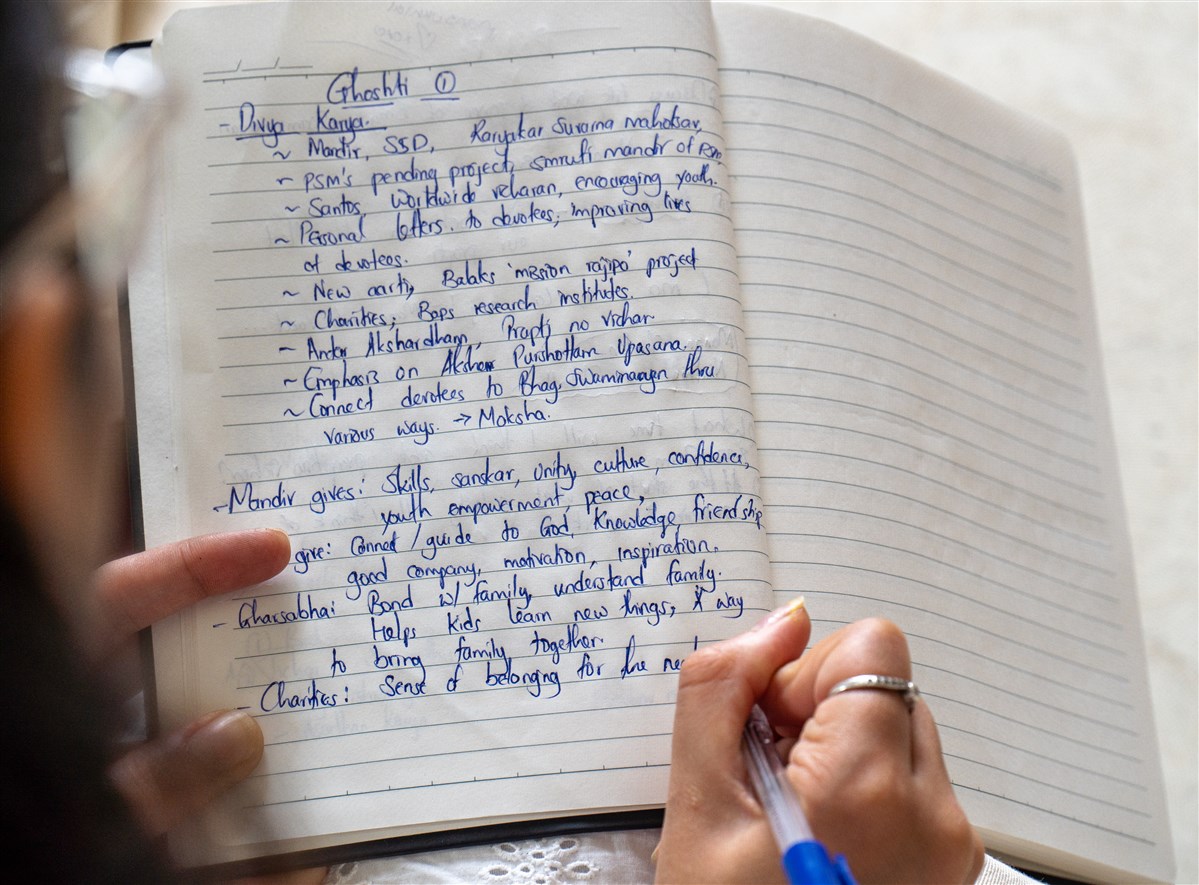 Ghoshti ①
- Divya Karya.
~ Mandir, SSD, Karyakar Suvarna mahotsav,
~ PSM's pending project, smruti mandir of PSM
~ Santos, Worldwide vicharan, encouraging youth.
~ Personal letters. to devotees, improving lives
of devotees.
~ New aarti, Balaks 'mission rajipo' project
~ Charities, Baps research institutes.
~ Antar Akshardham, Prapti no vichar
~ Emphasis on Akshar Purshottam Upasana.
~ Connect devotees to Bhag. Swaminarayan thru
various ways. → Moksha.
- Mandir gives: Skills, sanskar, Unity, culture, confidence,
youth empowerment, peace,
give: Connect / guide to God, Knowledge, friendship
good company, motivation, inspiration.
- Gharsabha: Bond w/ family, understand family.
Helps kids learn new things, way
to bring family together
- Charities: Sense of belonging for the